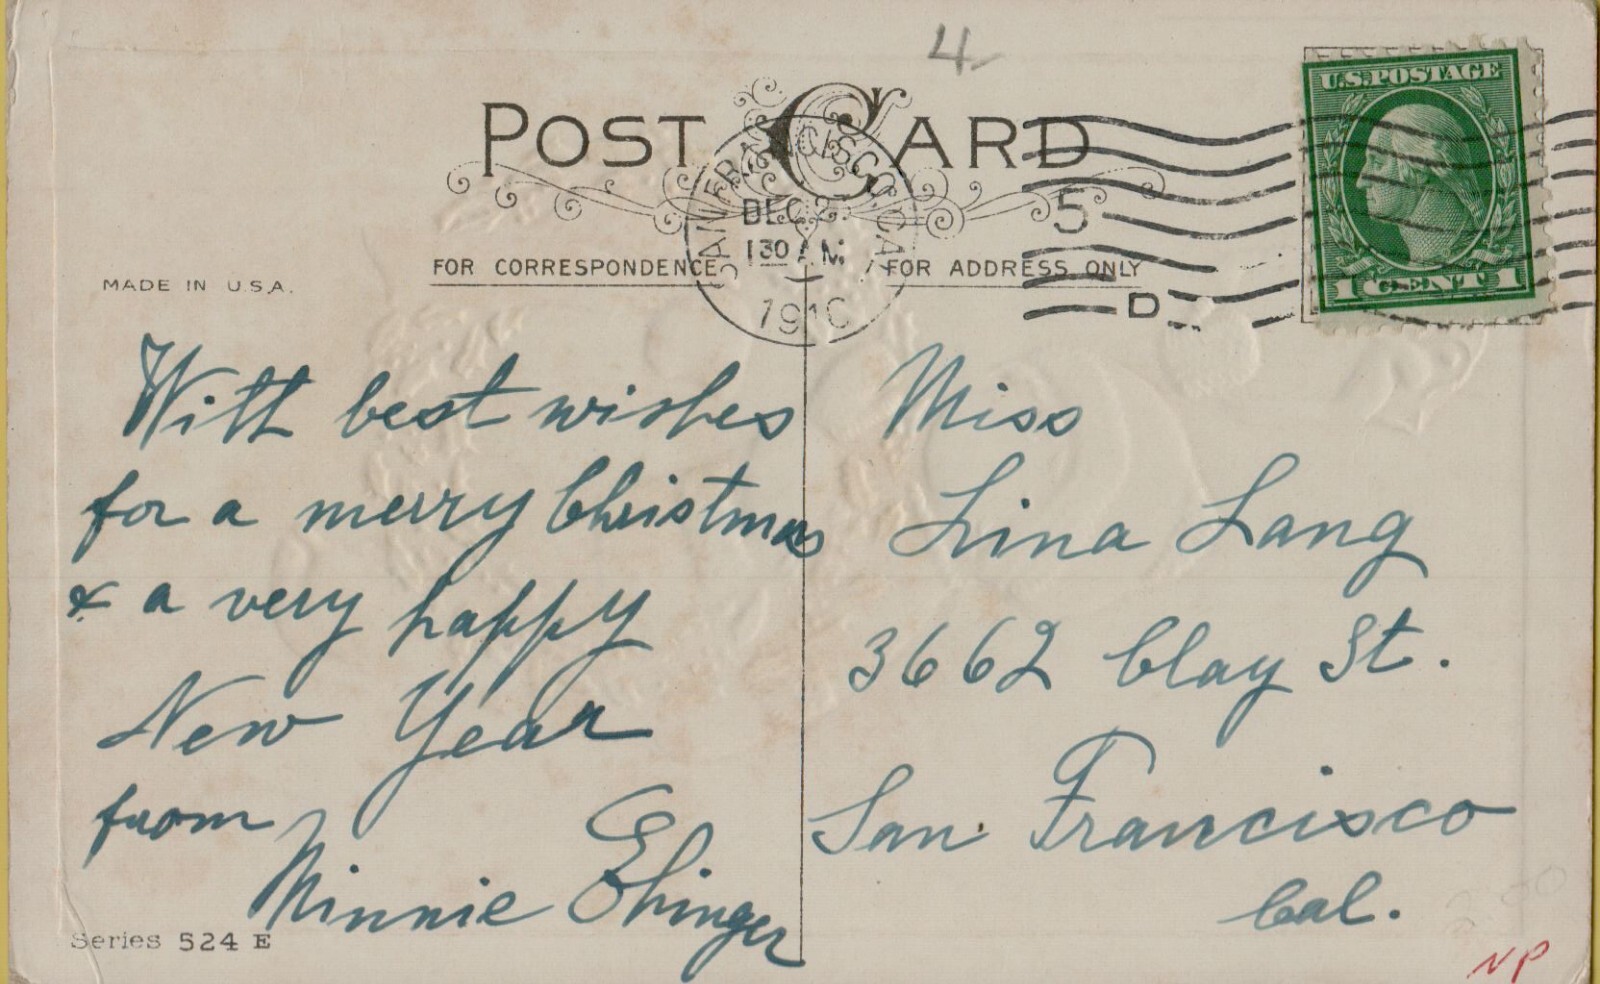 4
POST CARD
U.S. POSTAGE
1 CENT 1
SAN FRANCISCO, CAL
DEC 2
1 30 A.M.
5
D
FOR CORRESPONDENCE
FOR ADDRESS ONLY
MADE IN U.S.A.
With best wishes
for a merry Christmas
& a very happy
New Year
from
Minnie Ehinger
Series 524 E
Miss
Lina Lang
3662 Clay St.
San Francisco
Cal.
NP